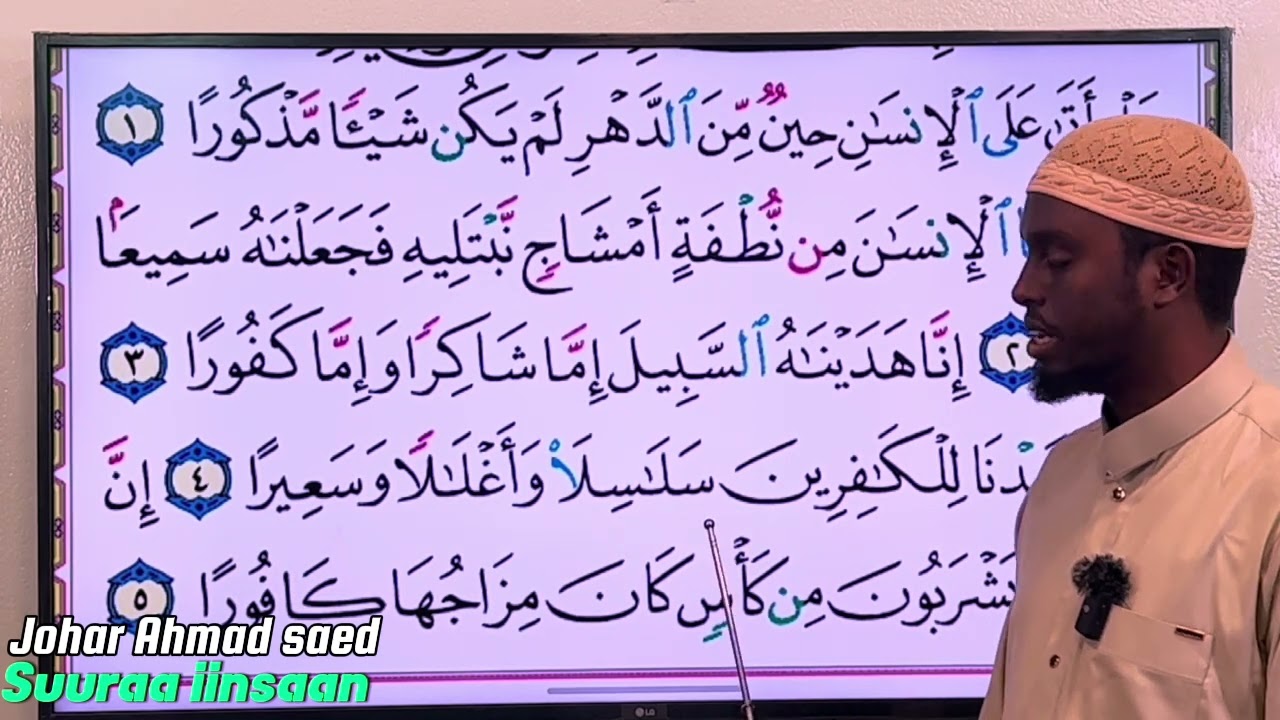 أَتَىٰ عَلَى ٱلْإِنسَٰنِ حِينٌ مِّنَ ٱلدَّهْرِ لَمْ يَكُن شَيْـًٔا مَّذْكُورًا ١
ٱلْإِنسَٰنَ مِن نُّطْفَةٍ أَمْشَاجٍ نَّبْتَلِيهِ فَجَعَلْنَٰهُ سَمِيعًۢا
٢ إِنَّا هَدَيْنَٰهُ ٱلسَّبِيلَ إِمَّا شَاكِرًا وَإِمَّا كَفُورًا ٣
لِلْكَٰفِرِينَ سَلَٰسِلَا۟ وَأَغْلَٰلًا وَسَعِيرًا ٤ إِنَّ
يَشْرَبُونَ مِن كَأْسٍ كَانَ مِزَاجُهَا كَافُورًا ٥
Johar Ahmad saed
Suuraa iinsaan
LG